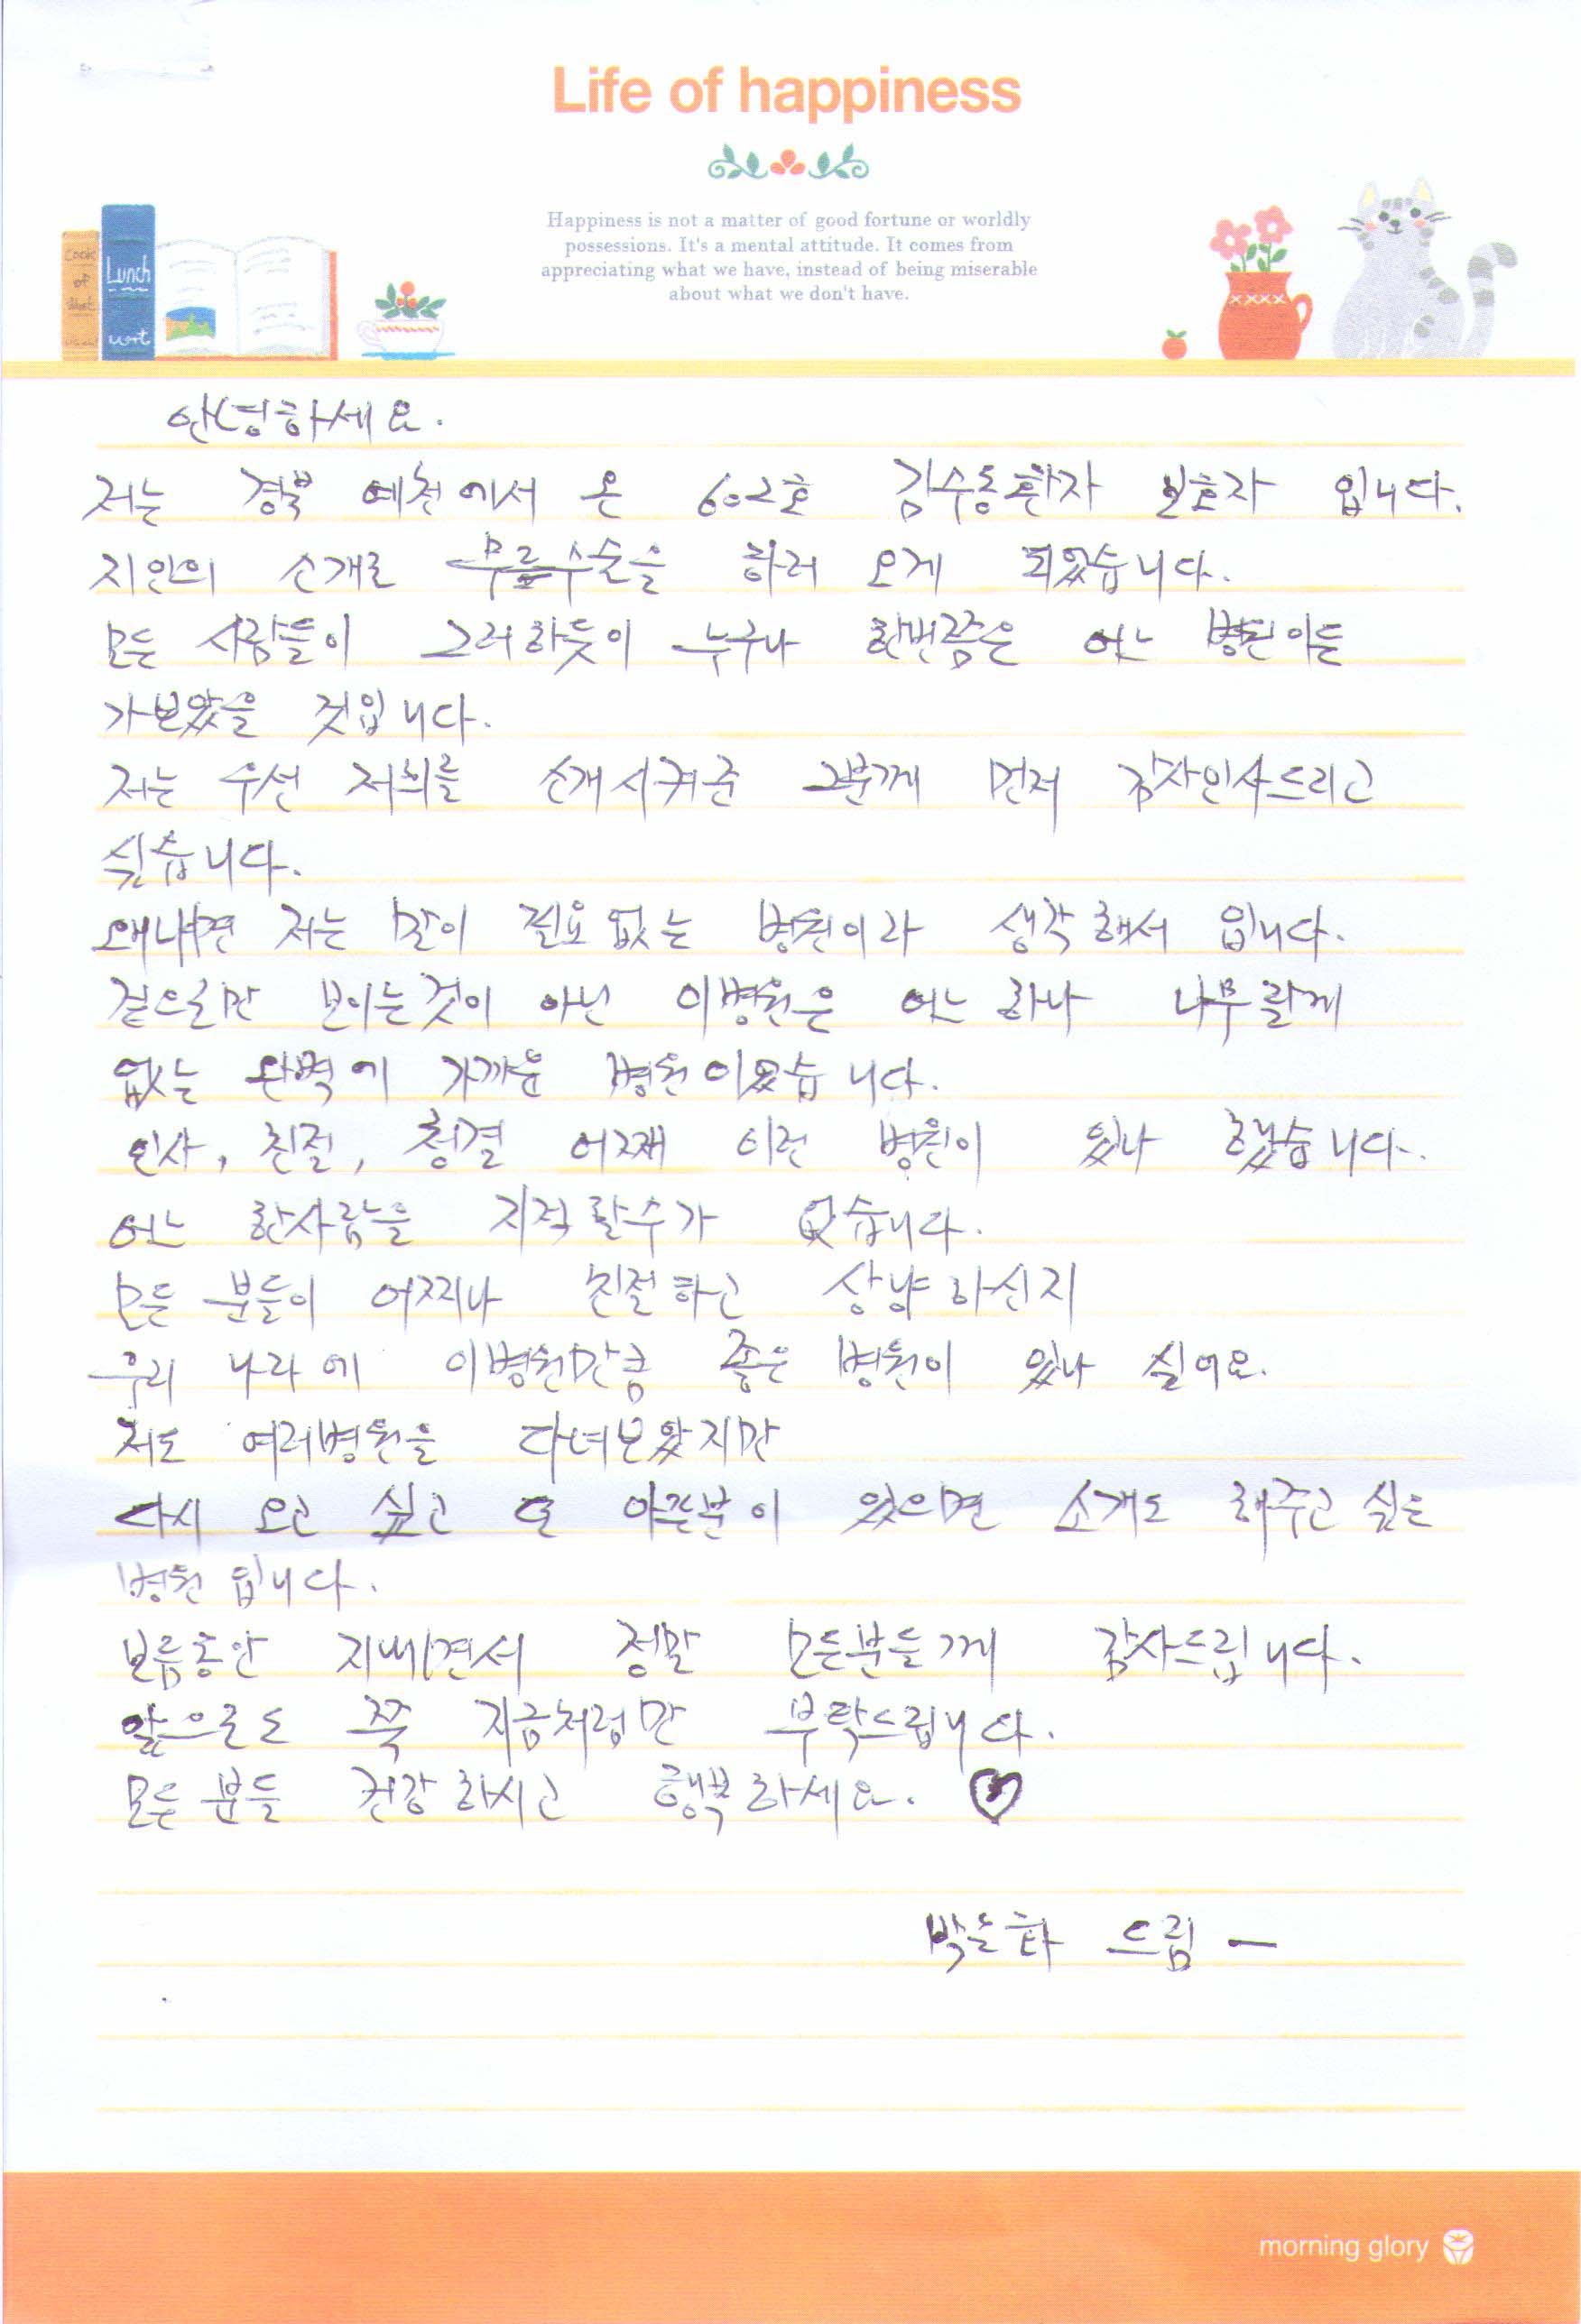 Life of happiness
Happiness is not a matter of good fortune or worldly
possessions. It's a mental attitude. It comes from
appreciating what we have, instead of being miserable
about what we don't have.
Cook
of
Lunch
안녕하세요.
저는 경북 예천에서 온 602호 김수동환자 보호자 입니다.
지인의 소개로 무릎수술을 하러 오게 되었습니다.
모든 사람들이 그러하듯이 누구나 한번쯤은 어느 병원이든
가보았을 것입니다.
저는 우선 저희를 소개시켜준 그분께 먼저 감사인사드리고
싶습니다.
왜냐면 저는 말이 필요없는 병원이라 생각해서 입니다.
겉으로만 보이는것이 아닌 이병원은 어느 하나 나무랄게
없는 완벽에 가까운 병원이였습니다.
인사, 친절, 청결 어쩜 이런 병원이 있나 했습니다.
어느 한사람을 지적할수가 없습니다.
모든 분들이 어찌나 친절하고 상냥하신지
우리 나라에 이병원만큼 좋은 병원이 있나 싶어요.
저도 여러병원을 다녀보았지만
다시 오고 싶고 또 아픈분이 있으면 소개도 해주고 싶은
병원 입니다.
보름동안 지내면서 정말 모든분들께 감사드립니다.
앞으로도 쭉 지금처럼만 부탁드립니다.
모든 분들 건강하시고 행복하세요. ♡
드림 ー
morning glory